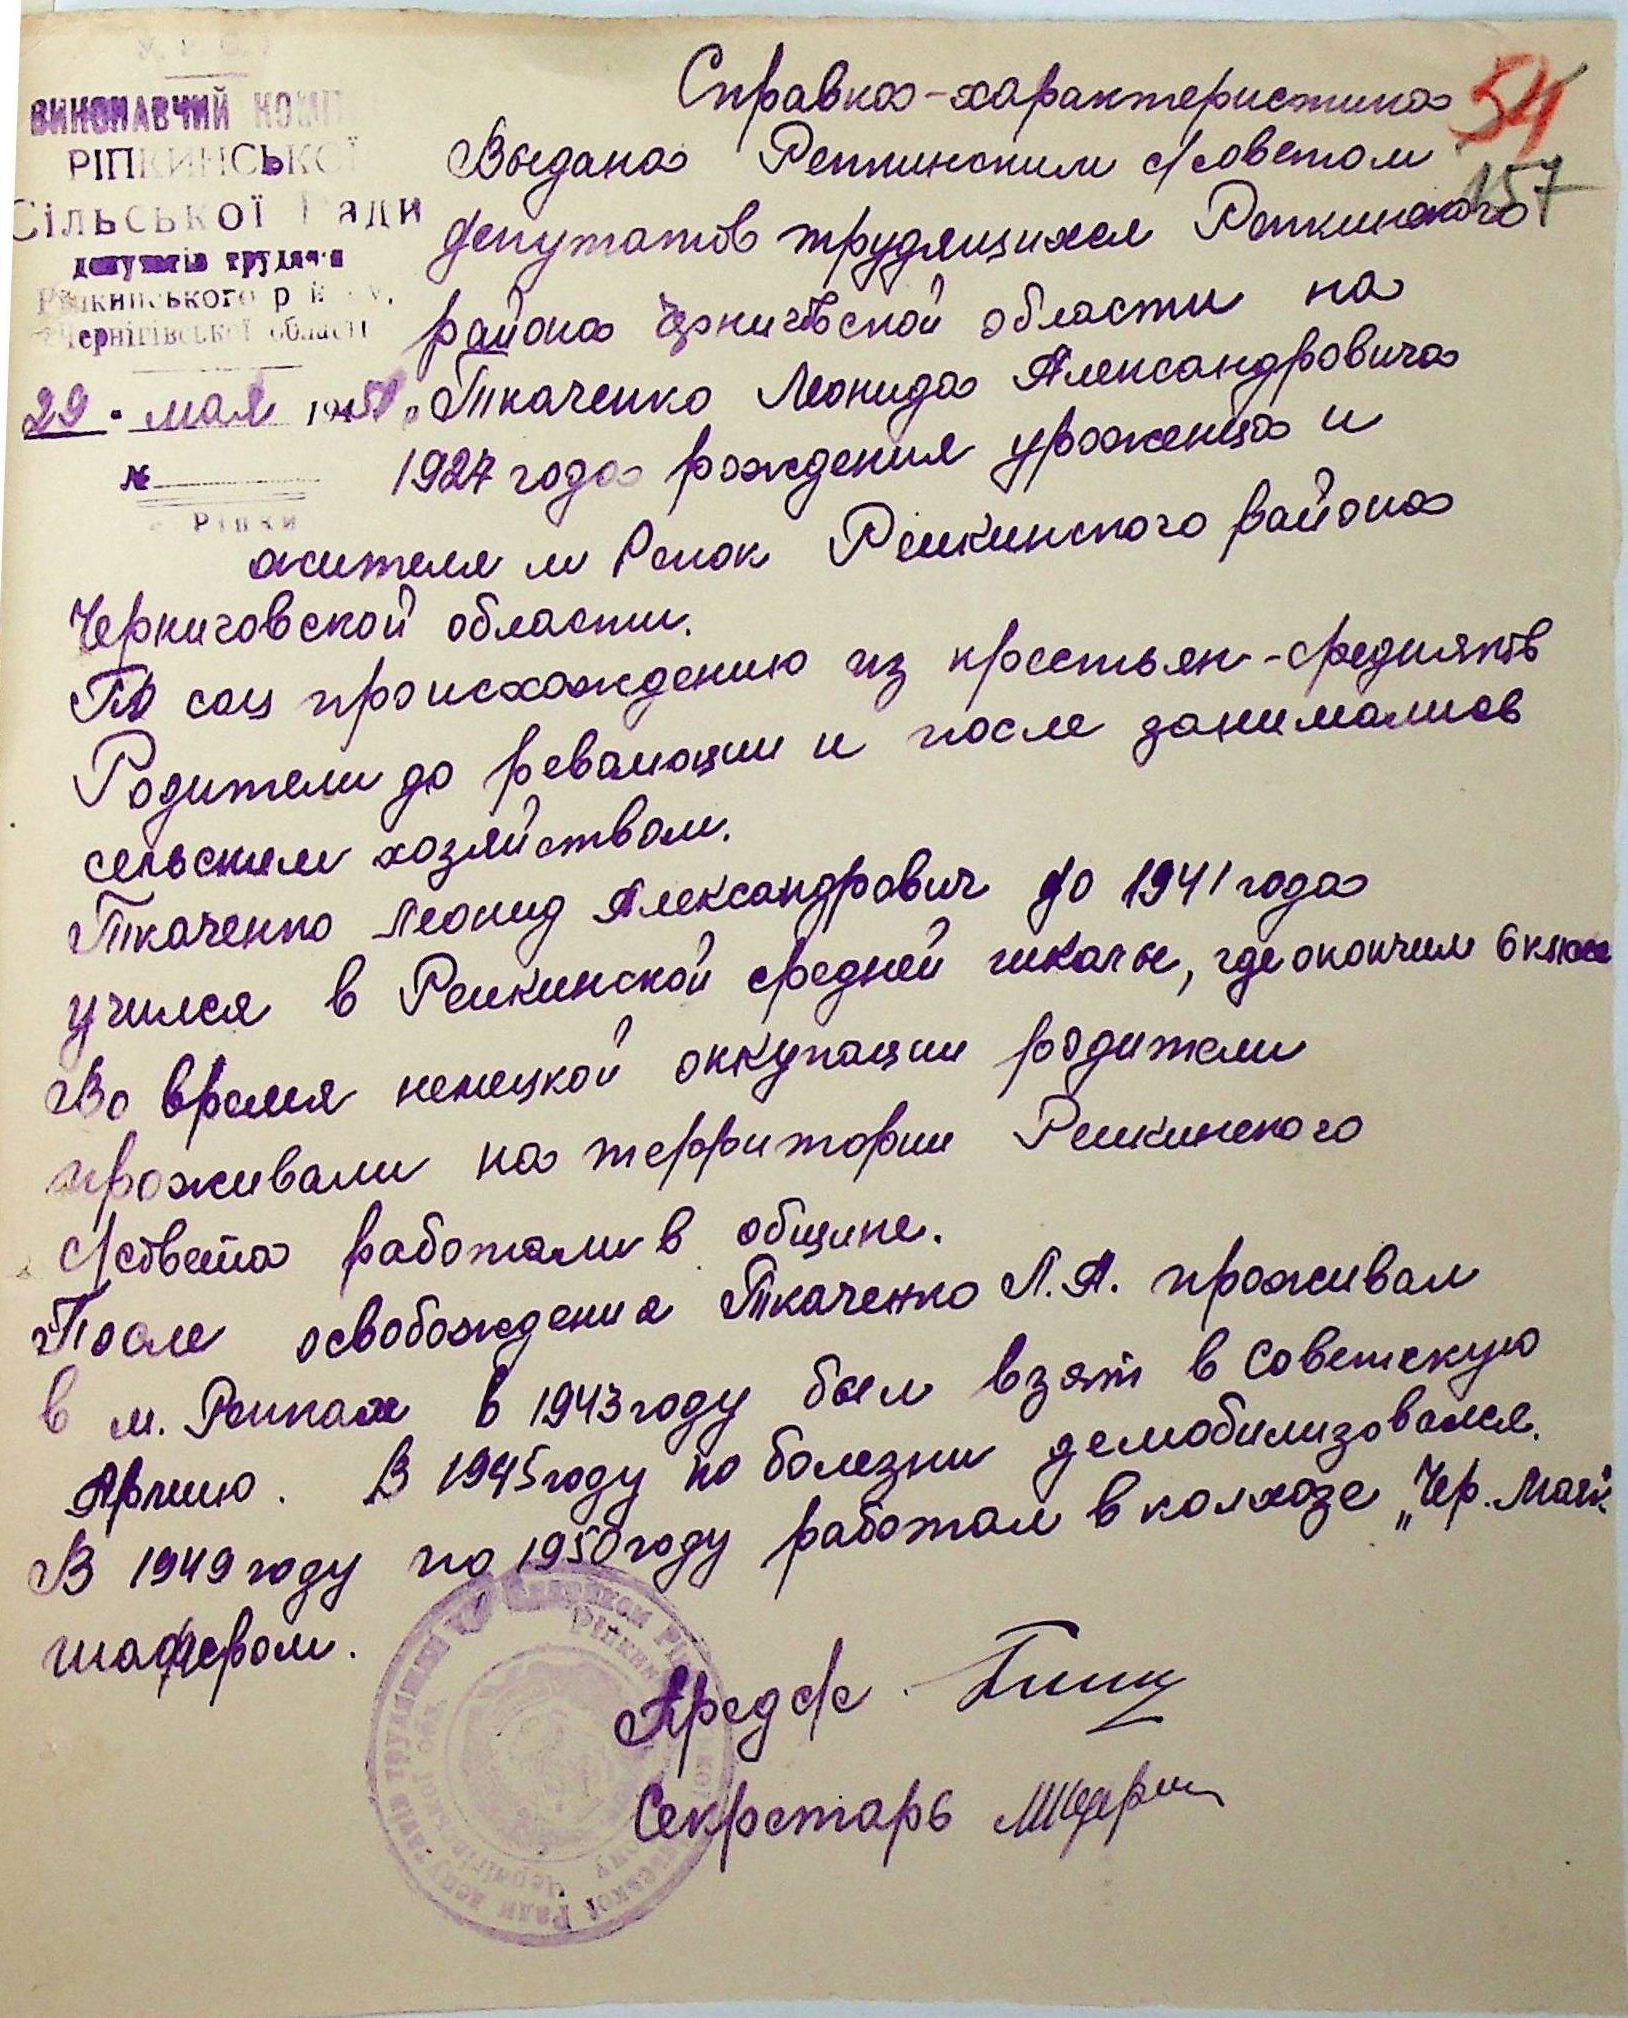 У.Р.С.Р.
ВИНОНАВЧИЙ КОМІТ
РІПКИНСЬКОЇ
Сільської Ради
депутатів трудящ
Ріпкинського р-ну,
Чернігівської області
29 · мая 1950
№
Ріпки
54
157
Справка-характеристика
Выдана Репкинским с/советом
депутатов трудящихся Репкинского
района Черниговской области на
Ткаченко Леонида Александровича
1927 года рождения уроженца и
жителя м Репок Репкинского района
Черниговской области.
По соц происхождению из крестьян-средняков
Родители до револющии и после занимались
сельским хозяйством.
Ткаченко Леонид Александрович до 1941 года
учился в Репкинской средней школы, где окончил 6 класс
Во время немецкой оккупации родители
проживали на территории Репкинского
с/совета работали в общине.
После освобождения Ткаченко Л.А. проживал
в м. Репках в 1943 году был взят в Советскую
Армию. В 1945 году по болезни демобилизовался.
В 1949 году по 1950 году работал в колхозе „Чер. Маяк
шофером.
Пред с/с
Секретарь